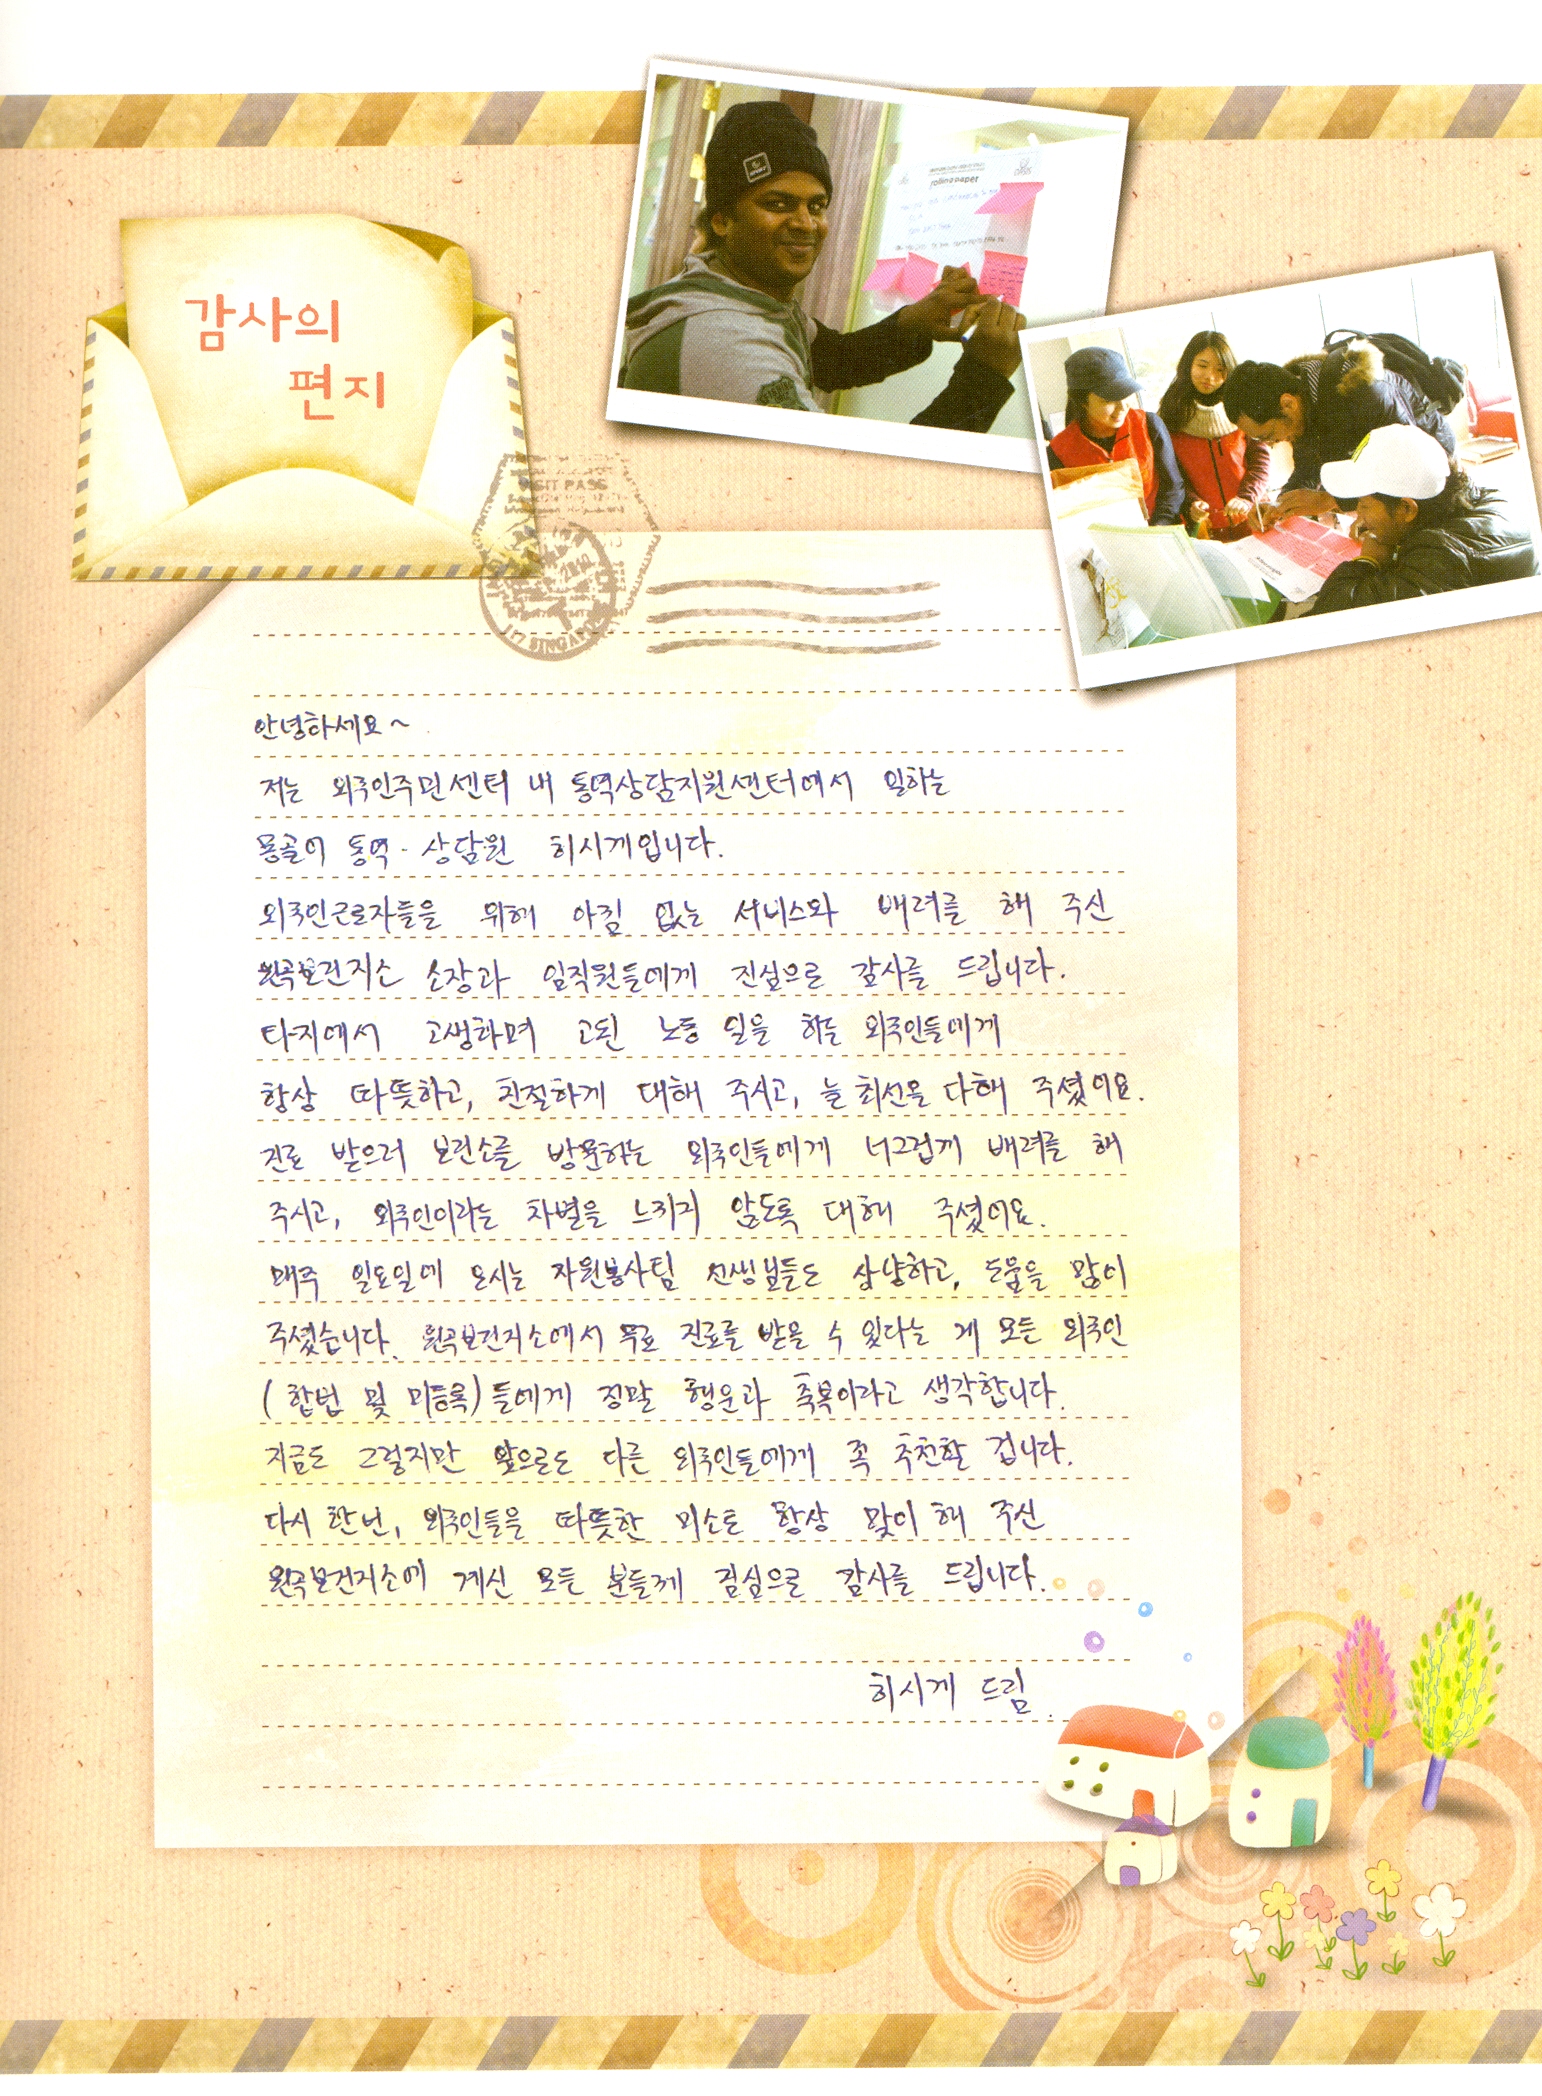 감사의
편지
rolling paper
VISIT PASS
안녕하세요~
저는 외국인주민센터 내 통역상담지원센터에서 일하는
몽골어 통역·상담원 히시게입니다.
외국인근로자들을 위해 아낌 없는 서비스와 배려를 해 주신
원곡보건지소 소장과 임직원들에게 진심으로 감사를 드립니다.
타지에서 고생하며 고된 노동 일을 하는 외국인들에게
항상 따뜻하고, 친절하게 대해 주시고, 늘 최선을 다해 주셨어요.
진료 받으러 보건소를 방문하는 외국인들에게 너그럽게 배려를 해
주시고, 외국인이라는 차별을 느끼지 않도록 대해 주셨어요.
매주 일요일에 오시는 자원봉사팀 선생님들도 상냥하고, 도움을 많이
주셨습니다. 원곡보건지소에서 무료 진료를 받을 수 있다는 게 모든 외국인
(합법 및 미등록)들에게 정말 행운과 축복이라고 생각합니다.
지금도 그렇지만 앞으로도 다른 외국인들에게 꼭 추천할 겁니다.
다시 한번, 외국인들을 따뜻한 미소로 항상 맞이 해 주신
원곡보건지소에 계신 모든 분들께 진심으로 감사를 드립니다.
히시게 드림.